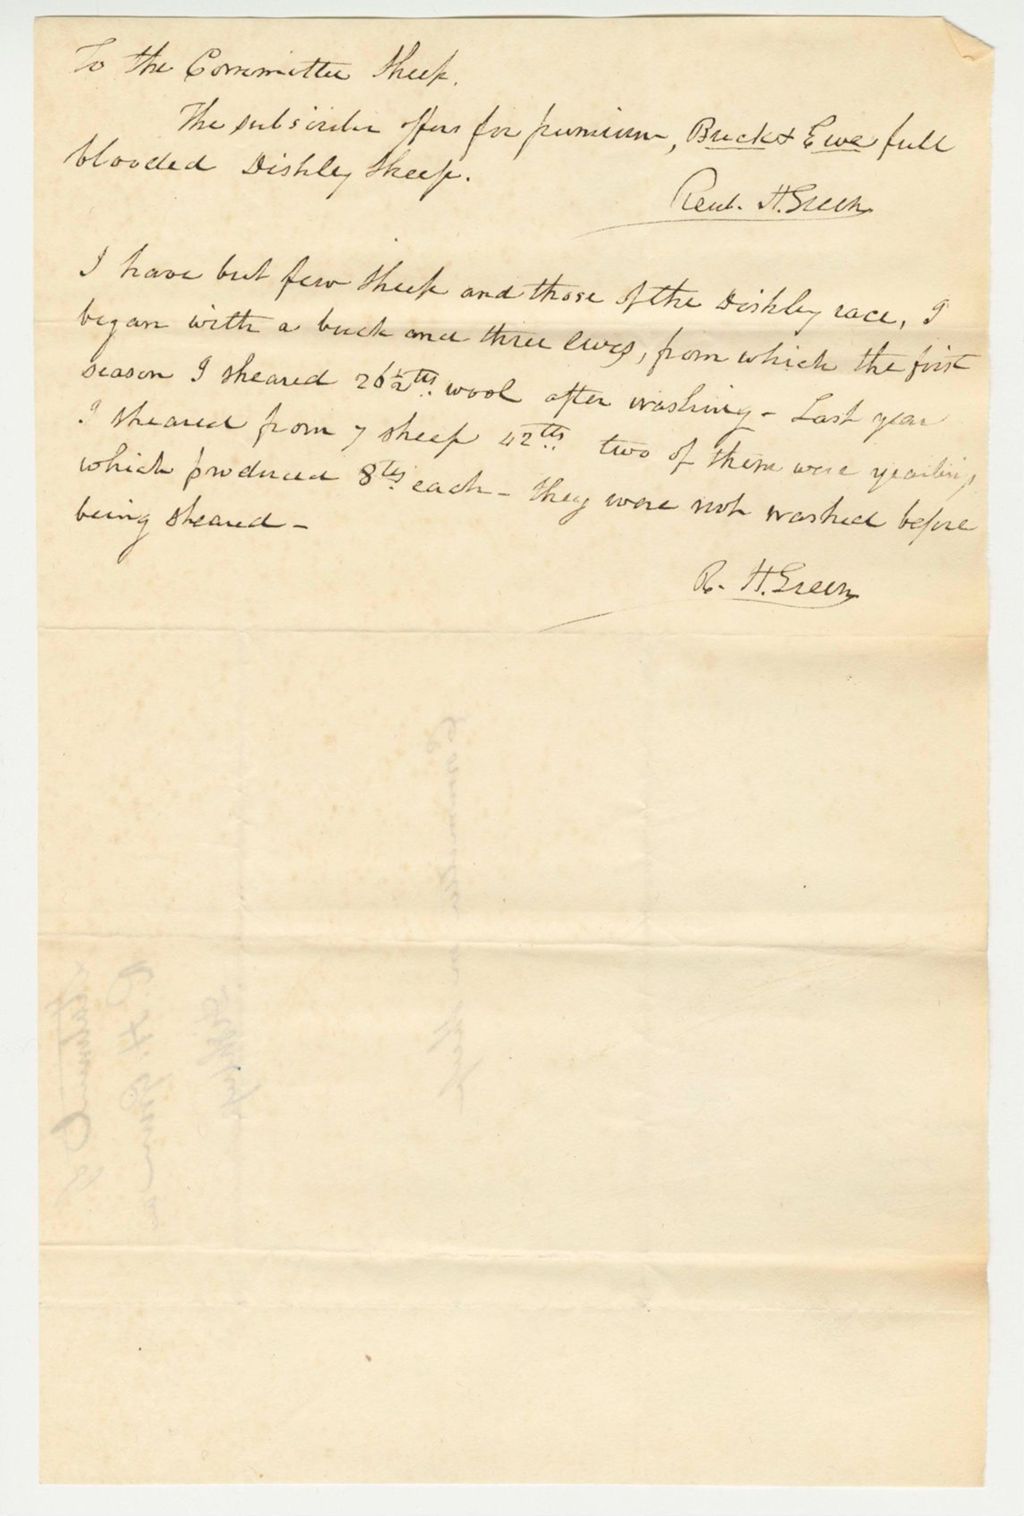 To the Committee Sheep.
The subscriber offers for premium, Buck & Ewe full
blooded Dishley Sheep.
Reub. H. Green
I have but few Sheep and those of the Dishley race, I
began with a buck and three Ewes, from which the first
season I sheared 26½ lbs. wool after washing - Last year
I sheared from 7 sheep 42 lbs. two of them were yearlings
which produced 8 lbs. each - they were not washed before
being sheared -
R. H. Green
Committee on Sheep
R. H. Green